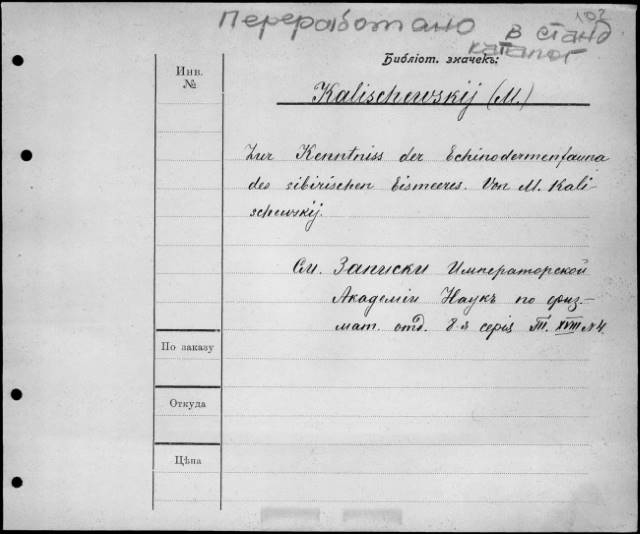 107
Переработано в станд
каталог
Библіот. значекъ:
Инв.
№
Kalischewskij (M.)
Zur Kenntniss der Echinodermenfauna
des sibirischen Eismeeres. Von M. Kali-
schewskij.
См. Записки Императорской
Академіи Наукъ по физ.-
мат. отд. 8-я серія Т. XVIII № 4.
По заказу
Откуда
Цѣна